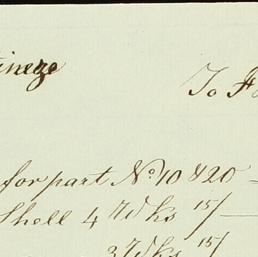 To
for part No. 10 & 20
Shell 4 Wks 15/
3 Wks 15/